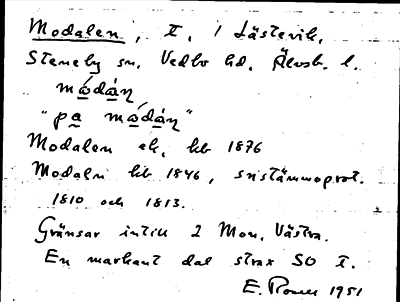 Modalen, I, 1 Lästevik,
Steneby sn. Vedbo hd. Älvsb. l.
mo̱dán
"pa mo̱dán"
Modalen ek, kb 1876
Modaln kb 1846, sistämmoprot.
1810 och 1813.
Gränsar intill 2 Mon, Västra.
En markant dal strax SO I.
1951